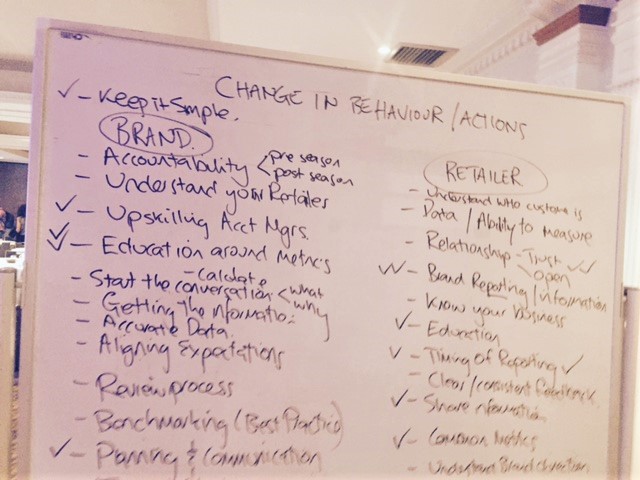 CHANGE IN BEHAVIOUR / ACTIONS
✓ - Keep it Simple.
BRAND.
- Accountability < pre season
post season
- Understand your Retailers
✓ - Upskilling Acct Mgrs.
✓✓ - Education around Metrics
- calculate
- Start the conversation < what
why
- Getting The Informatio
- Accurate Data.
- Aligning Expectations
- Review process
- Benchmarking (Best Practice)
✓ - Planning & Communication
RETAILER
- Understand who custome is
- Data / Ability to Measure
- Relationship - Trust ✓✓
open
✓✓ - Brand Reporting / Information
- Know your business
✓ - Education
✓ - Timing of Reporting ✓
- Clear / consistent feedback.
✓ - Share information
✓ - Common Metrics
- Understand Brand direction